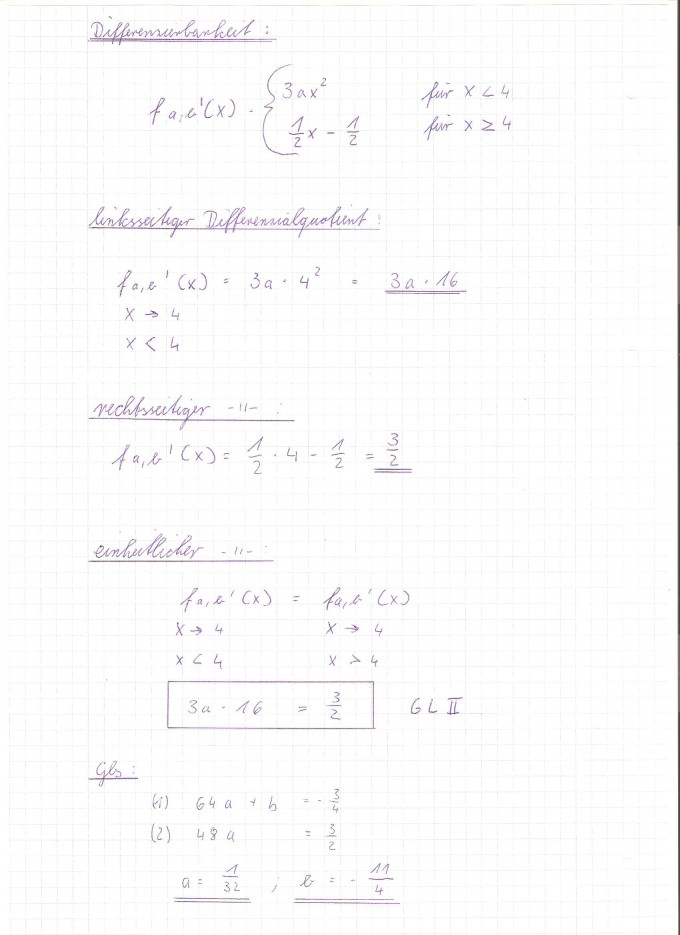 Differenzierbarkeit :
f a,b'(x) = { 3ax² für x < 4
1/2 x - 1/2 für x ≥ 4
linksseitiger Differenzialquotient :
f a,b'(x) = 3a · 4² = 3a · 16
x → 4
x < 4
rechtsseitiger -11- :
f a,b'(x) = 1/2 · 4 - 1/2 = 3/2
einheitlicher -11- :
f a,b'(x) = f a,b'(x)
x → 4 x → 4
x < 4 x > 4
3a · 16 = 3/2 GL II
Gls :
(1) 64a + b = - 3/4
(2) 48a = 3/2
a = 1/32 ; b = - 11/4